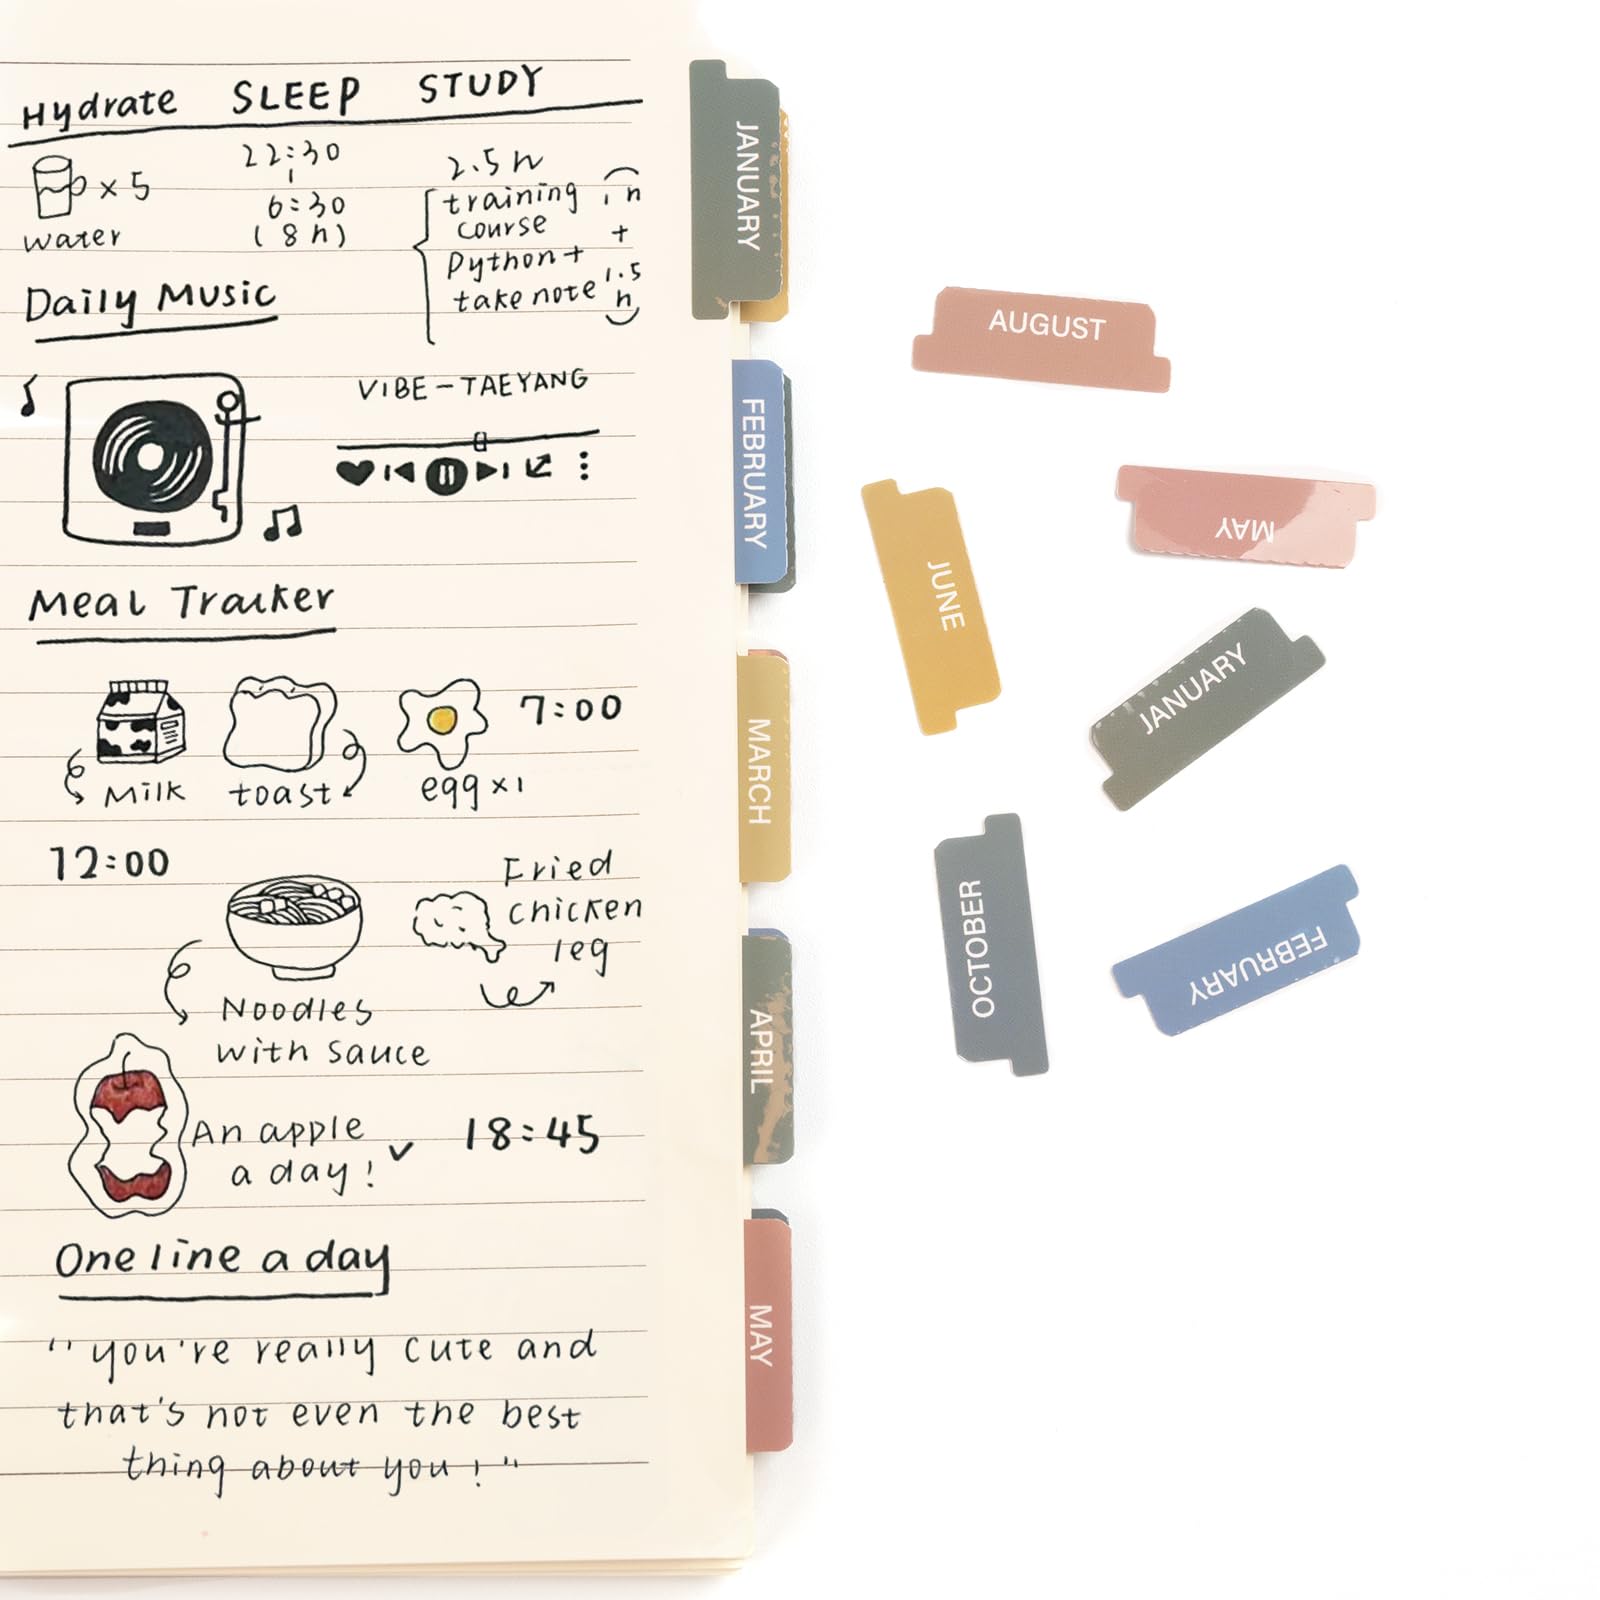 Hydrate SLEEP STUDY
x 5
water
22:30
6:30
(8h)
2.5 h
training 1h
course +
Python +
take note 1.5
h
Daily Music
VIBE - TAEYANG
Meal Tracker
Milk
toast
egg x1
7:00
12:00
Noodles
with sauce
Fried
chicken
leg
An apple
a day!
18:45
One line a day
"you're really cute and
that's not even the best
thing about you!"
JANUARY
FEBRUARY
MARCH
APRIL
MAY
AUGUST
MAY
JUNE
JANUARY
OCTOBER
FEBRUARY